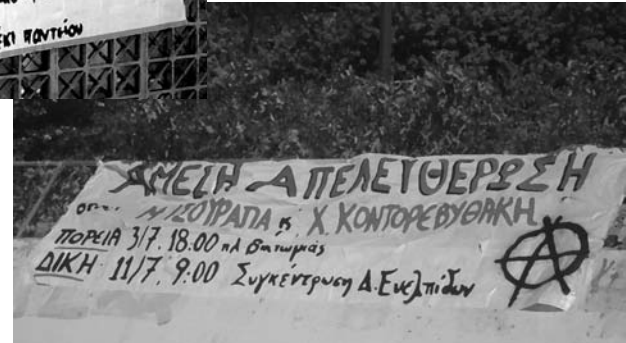 παντείου
ΑΜΕΣΗ ΑΠΕΛΕΥΘΕΡΩΣΗ
ΣΟΥΡΑΠΑ Κ Χ. ΚΟΝΤΟΡΕΒΥΘΑΚΗ
ΠΟΡΕΙΑ 3/7. 18:00 πλ Βικτωριάς
ΔΙΚΗ 11/7. 9:00 Συγκέντρωση Δ. Ευελπίδων